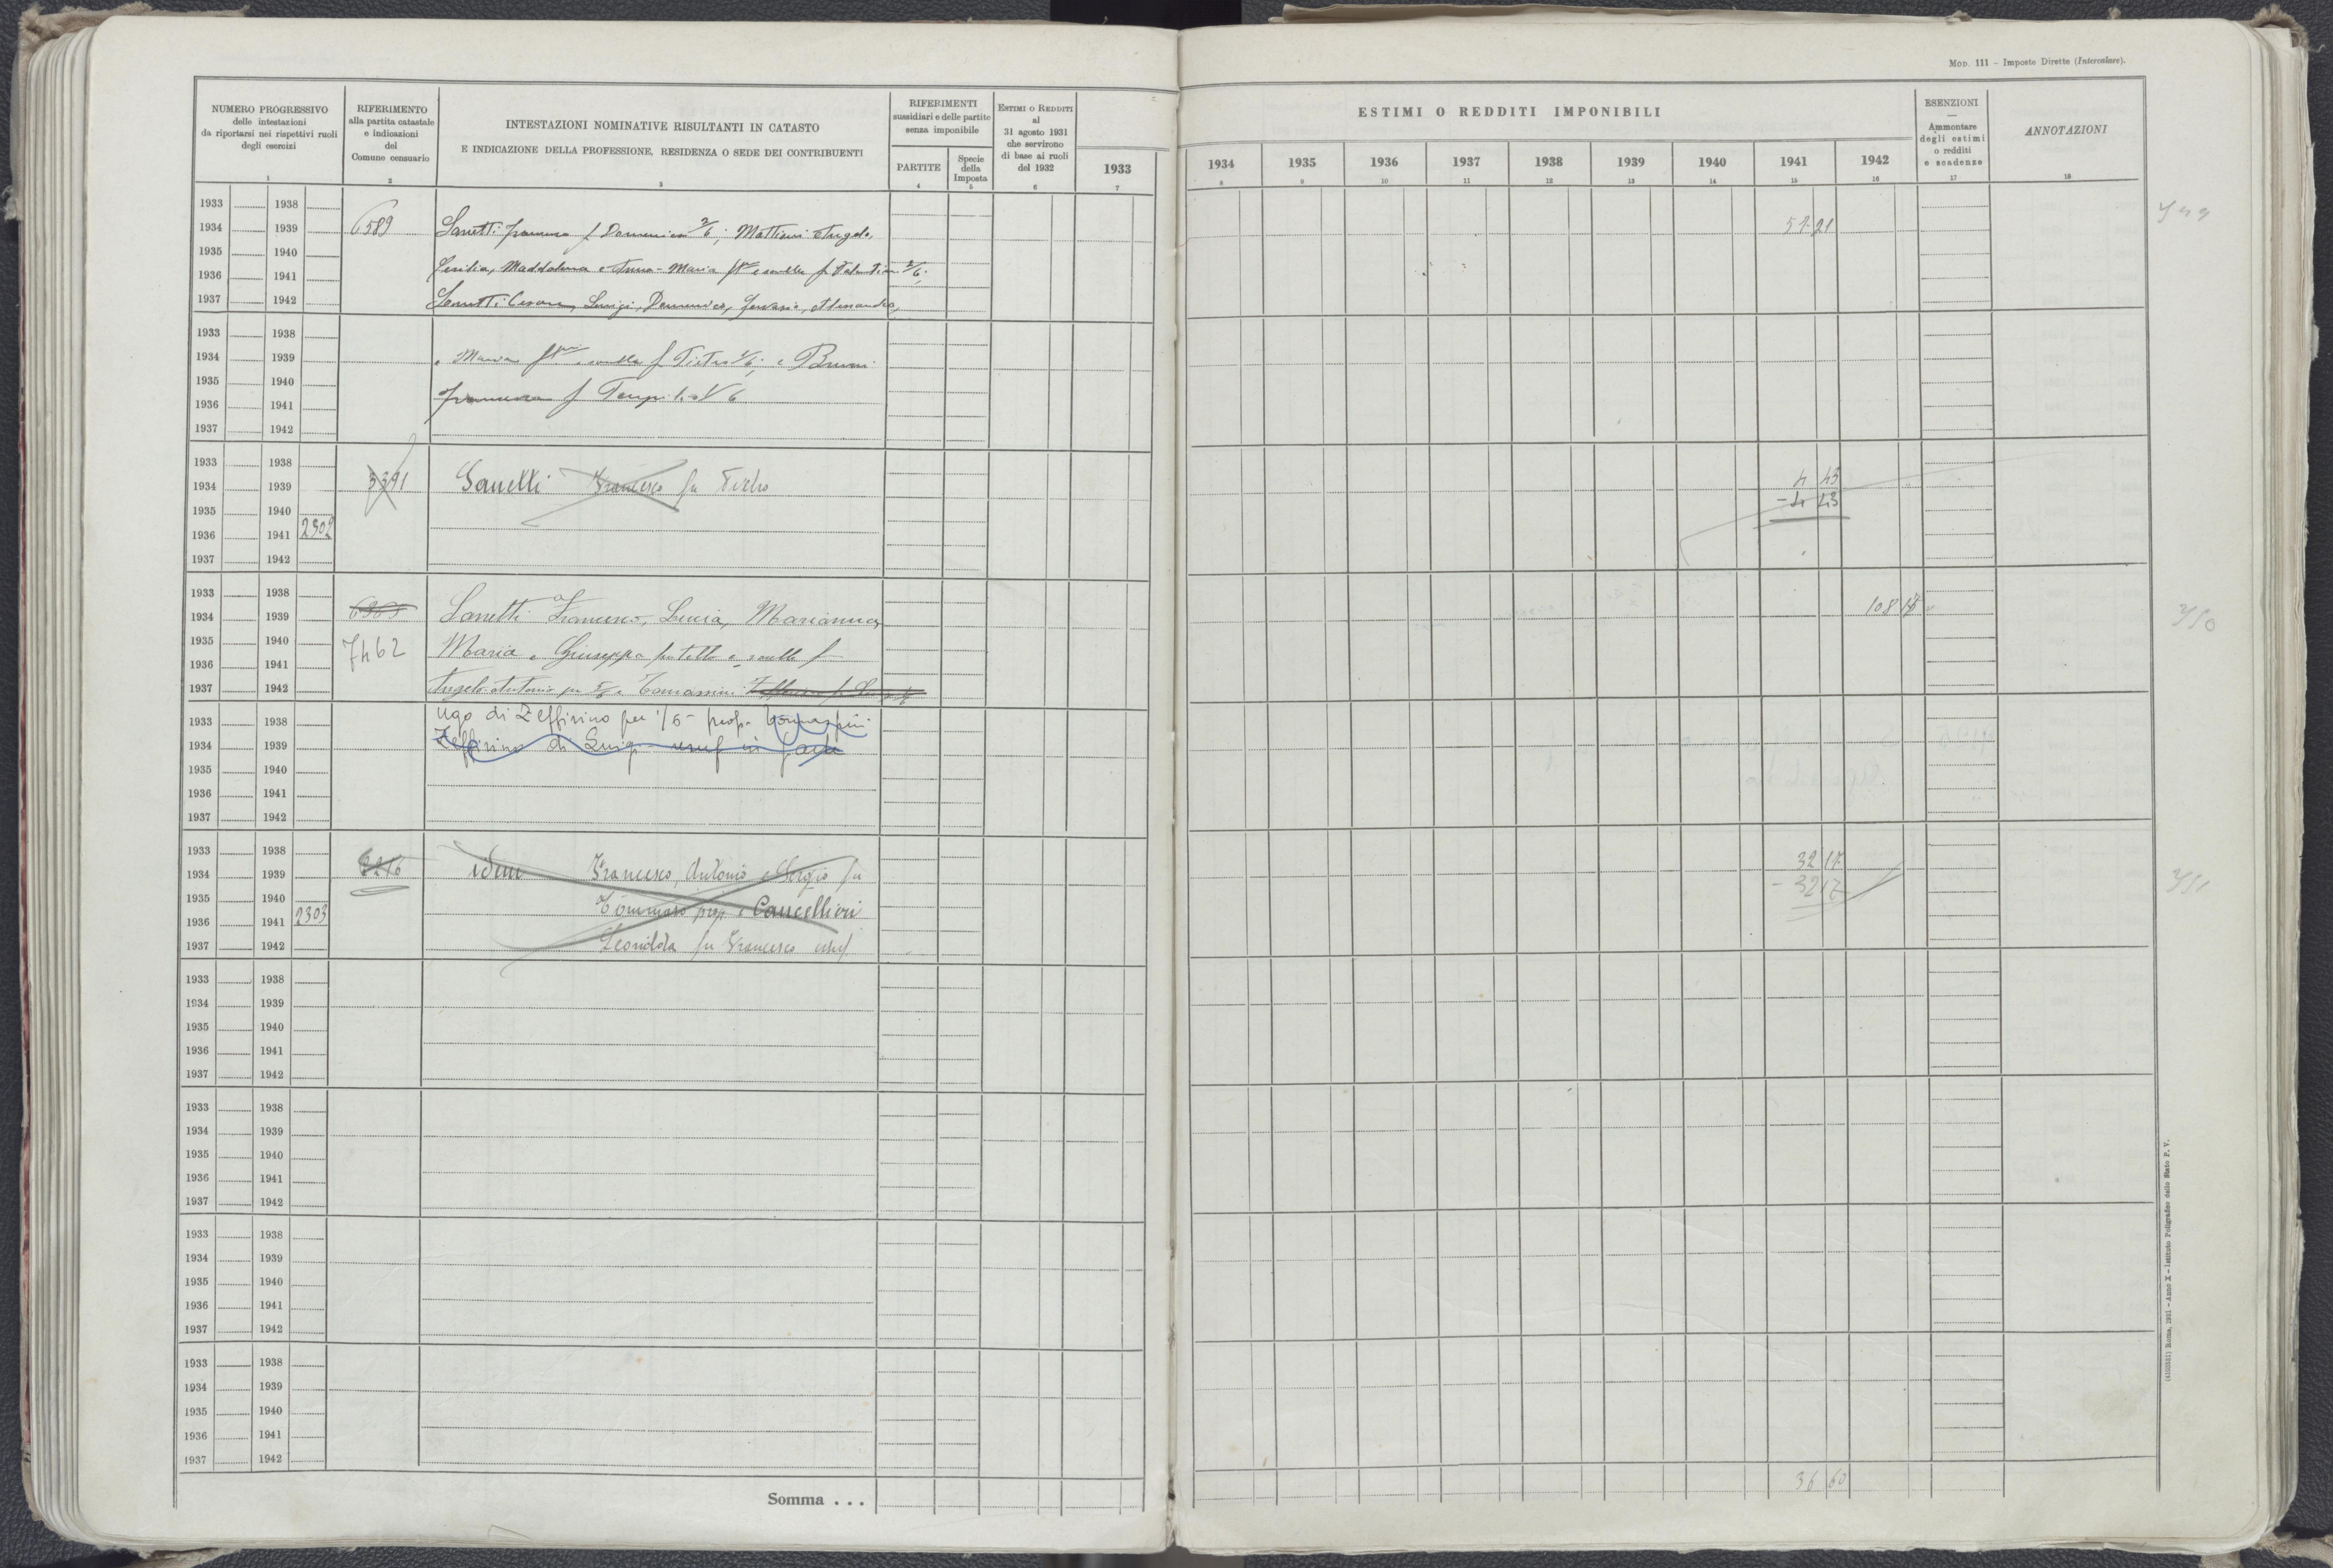 MOD. 111 – Imposte Dirette (Intercalare).
NUMERO PROGRESSIVO
delle intestazioni
da riportarsi nei rispettivi ruoli
degli esercizi
1
RIFERIMENTO
alla partita catastale
e indicazioni
del
Comune censuario
2
INTESTAZIONI NOMINATIVE RISULTANTI IN CATASTO
E INDICAZIONE DELLA PROFESSIONE, RESIDENZA O SEDE DEI CONTRIBUENTI
3
RIFERIMENTI
sussidiari e delle partite
senza imponibile
PARTITE
4
Specie
della
Imposta
5
ESTIMI O REDDITI
al
31 agosto 1931
che servirono
di base ai ruoli
del 1932
6
1933
7
ESTIMI O REDDITI IMPONIBILI
1934 1935 1936 1937 1938 1939 1940 1941 1942
8 9 10 11 12 13 14 15 16
ESENZIONI
—
Ammontare
degli estimi
o redditi
e scadenze
17
ANNOTAZIONI
18
1933 1938
1934 1939 6589 Sanetti Francesco f Domenico 2/6; Mattioni Angelo, 21
1935 1940
1936 1941 Maddalena e Anna-Maria 2/6;
1937 1942 Sanetti Cesare, Luigi, Domenico, Alessandro,
1933 1938
1934 1939 e Maria f Pietro 1/6; e Bruni
1935 1940
1936 1941 Francesca f 1/6
1937 1942
1933 1938
1934 1939 3391 Sanetti Francesco fu Pietro 4 43
1935 1940 - 4 43
1936 1941 2302
1937 1942
1933 1938
1934 1939 Sanetti Francesco, Lucia, Marianna, 108
1935 1940 7462 Maria e Giuseppa fratello e sorelle f
1936 1941
1937 1942 Angelo Antonio per Tomassini
1933 1938 Ugo di Zeffirino per 1/5 prop. Tomassini
1934 1939 Zeffirino di Luigi usuf in parte
1935 1940
1936 1941
1937 1942
1933 1938
1934 1939 3216 idem Francesco, Antonio e Sergio fu 32 17
1935 1940 - 32 17
1936 1941 2303 Tommaso prop. e Cancellieri
1937 1942 Leonilda fu Francesco usuf.
1933 1938
1934 1939
1935 1940
1936 1941
1937 1942
1933 1938
1934 1939
1935 1940
1936 1941
1937 1942
1933 1938
1934 1939
1935 1940
1936 1941
1937 1942
1933 1938
1934 1939
1935 1940
1936 1941
1937 1942
Somma . . . 36 60
Roma, 1931 – Anno X – Istituto Poligrafico dello Stato P. V.